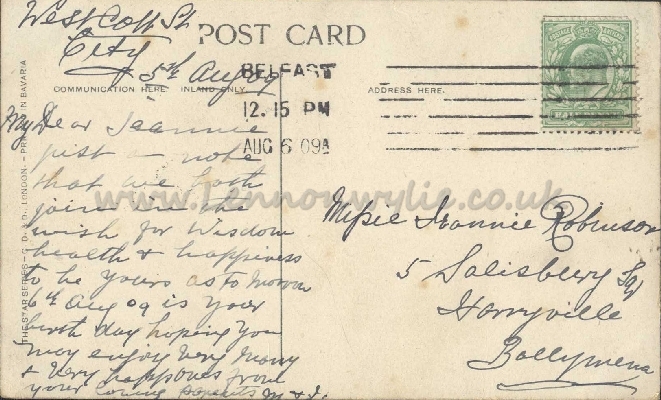 West Cott St
City
5th Aug 09
POST CARD
COMMUNICATION HERE INLAND ONLY.
ADDRESS HERE.
BELFAST
12.15 PM
AUG 6 09
My Dear Jeannie
just a note
that we both
join in the
wish for Wisdom
health & happiness
to be yours as to morrow
6th Aug 09 is your
birth day hoping you
may enjoy very many
& very happy ones from
your loving parents M & J.
Missie Jeannie Robinson
5 Salisbury Sq
Harryville
Ballymena
THE STAR SERIES - G. D. & D. LONDON. - PRINTED IN BAVARIA
www.lennonwylie.co.uk